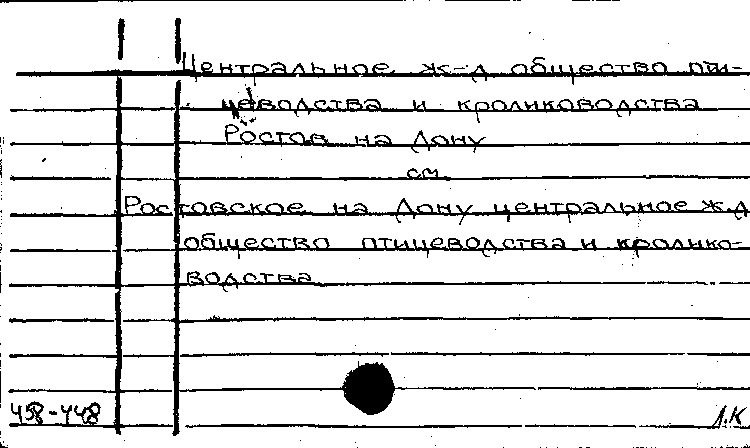 Центральное ж-д общество пти-
цеводства и кролиководства
Ростов на Дону
см.
Ростовское на Дону центральное ж.д
общество птицеводства и кролико-
водства
458-448
Л.К